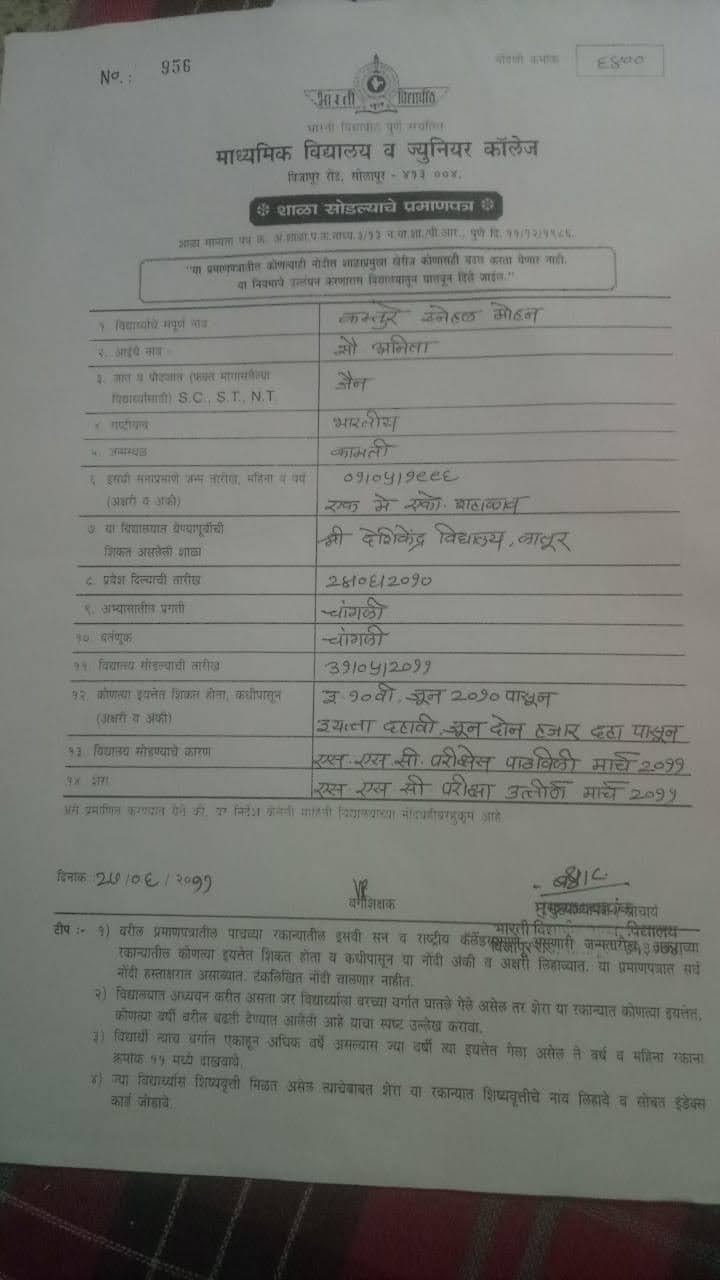 No.: 956
नोंदणी क्रमांक ६४००
भारती विद्यापीठ
भारती विद्यापीठ पुणे संचलित
माध्यमिक विद्यालय व ज्युनियर कॉलेज
विजापूर रोड, सोलापूर - ४१३ ००४.
❊ शाळा सोडल्याचे प्रमाणपत्र ❊
शाळा मान्यता पत्र क्र. पुणे दि. ११/१२/१९८६.
"या प्रमाणपत्रातील कोणत्याही नोंदीत शाळाप्रमुखा खेरीज कोणासही बदल करता येणार नाही.
या नियमाचे उल्लंघन करणारास विद्यालयातून घालवून दिले जाईल."
१. विद्यार्थ्याचे संपूर्ण नाव कस्तुरे स्नेहल मोहन
२. आईचे नाव सौ अनिता
३. जात व पोटजात (फक्त मागासलेल्या जैन
विद्यार्थ्यांसाठी) S.C., S.T., N.T.
४. राष्ट्रीयत्व भारतीय
५. जन्मस्थळ कामती
६. इसवी सनाप्रमाणे जन्म तारीख, महिना व वर्ष ०१/०५/१९९६
(अक्षरी व अंकी) एक मे एको.
७. या विद्यालयात येण्यापूर्वीची श्री देशिकेंद्र विद्यालय,
शिकत असलेली शाळा
८. प्रवेश दिल्याची तारीख २४/०६/२०१०
९. अभ्यासातील प्रगती चांगली
१०. वर्तणूक चांगली
११. विद्यालय सोडल्याची तारीख ३१/०५/२०११
१२. कोणत्या इयत्तेत शिकत होता, कधीपासून इ. १०वी. जून २०१० पासून
(अक्षरी व अंकी) इयत्ता दहावी. जून दोन हजार दहा पासून
१३. विद्यालय सोडण्याचे कारण एस. एस. सी. परीक्षेस पाठविली मार्च २०११
१४. शेरा एस. एस. सी परीक्षा उत्तीर्ण मार्च २०११
असे प्रमाणित करण्यात येते की, वर निर्देश केलेली माहिती विद्यालयाच्या नोंदवहीबरहुकूम आहे.
दिनांक २७/०६/२०११
वर्गशिक्षक
प्राचार्य
भारती विद्यापीठ विद्यालय
टीप :- १) वरील प्रमाणपत्रातील पाचव्या रकान्यातील इसवी सन व राष्ट्रीय कॅलेंडरप्रमाणे
रकान्यातील कोणत्या इयत्तेत शिकत होता व कधीपासून या नोंदी अंकी व अक्षरी लिहाव्यात. या प्रमाणपत्रात सर्व
नोंदी हस्ताक्षरात असाव्यात. टंकलिखित नोंदी चालणार नाहीत.
२) विद्यालयात अध्ययन करीत असता जर विद्यार्थ्याला वरच्या वर्गात घातले गेले असेल तर शेरा या रकान्यात कोणत्या इयत्तेत,
कोणत्या वर्षी वरील बढती देण्यात आलेली आहे याचा स्पष्ट उल्लेख करावा.
३) विद्यार्थी त्याच वर्गात एकाहून अधिक वर्षे असल्यास ज्या वर्षी त्या इयत्तेत गेला असेल ते वर्ष व महिना रकाना
क्रमांक ११ मध्ये दाखवावे.
४) ज्या विद्यार्थ्यास शिष्यवृत्ती मिळत असेल त्याचेबाबत शेरा या रकान्यात शिष्यवृत्तीचे नाव लिहावे व सोबत इंडेक्स
कार्ड जोडावे.